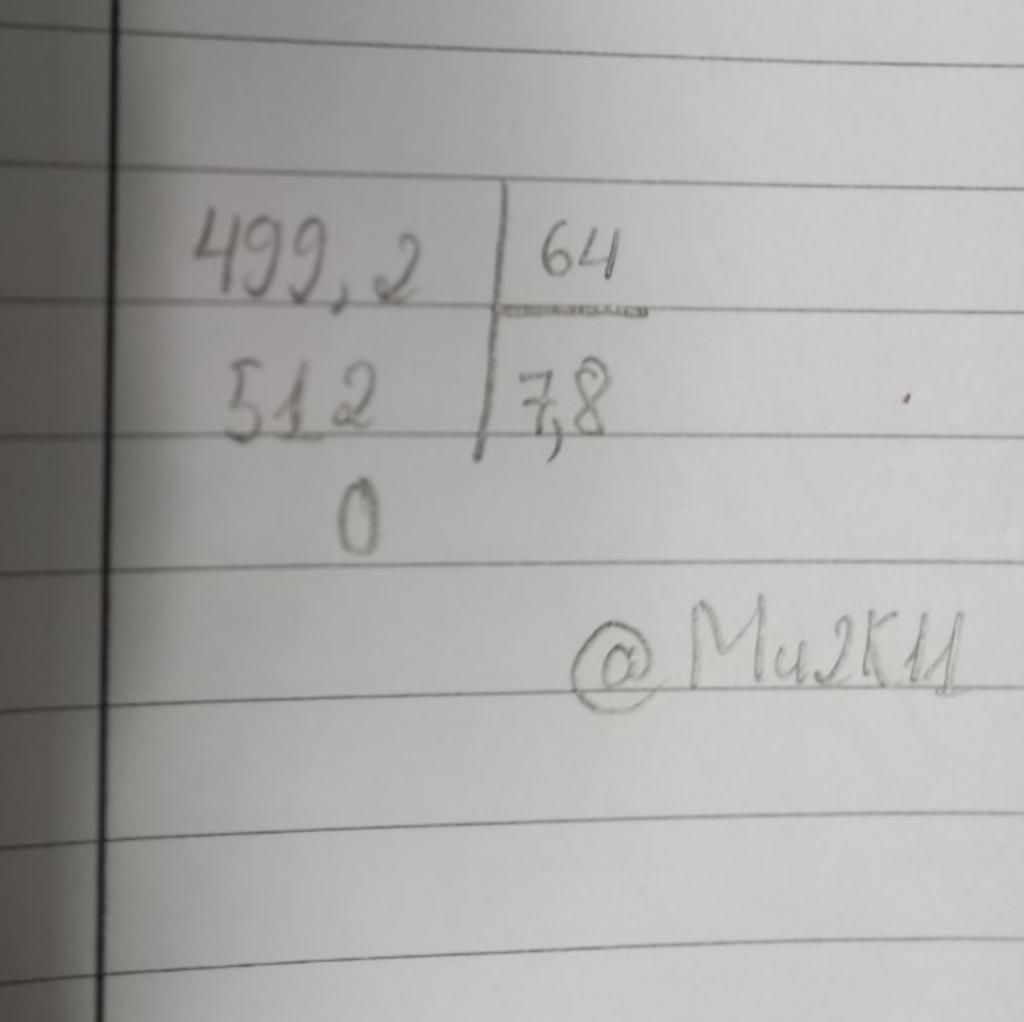 499,2 64
512 7,8
0
@Mu2K11